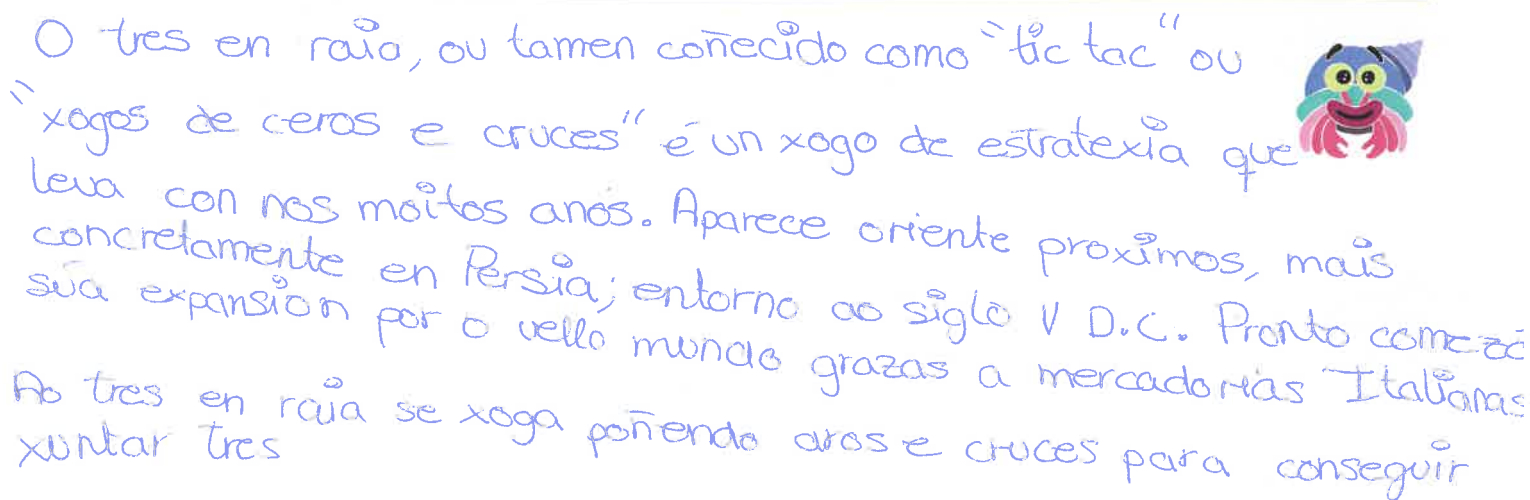 O tres en raia, ou tamen coñecido como "tic tac" ou
"xogos de ceros e cruces" é un xogo de estratexia que
leva con nos moitos anos. Aparece oriente proximos, mais
concretamente en Persia; entorno ao siglo V D.C. Pronto comezó
sua expansion por o vello mundo grazas a mercadorias Italianas
Ao tres en raia se xoga poñendo aros e cruces para conseguir
xuntar tres